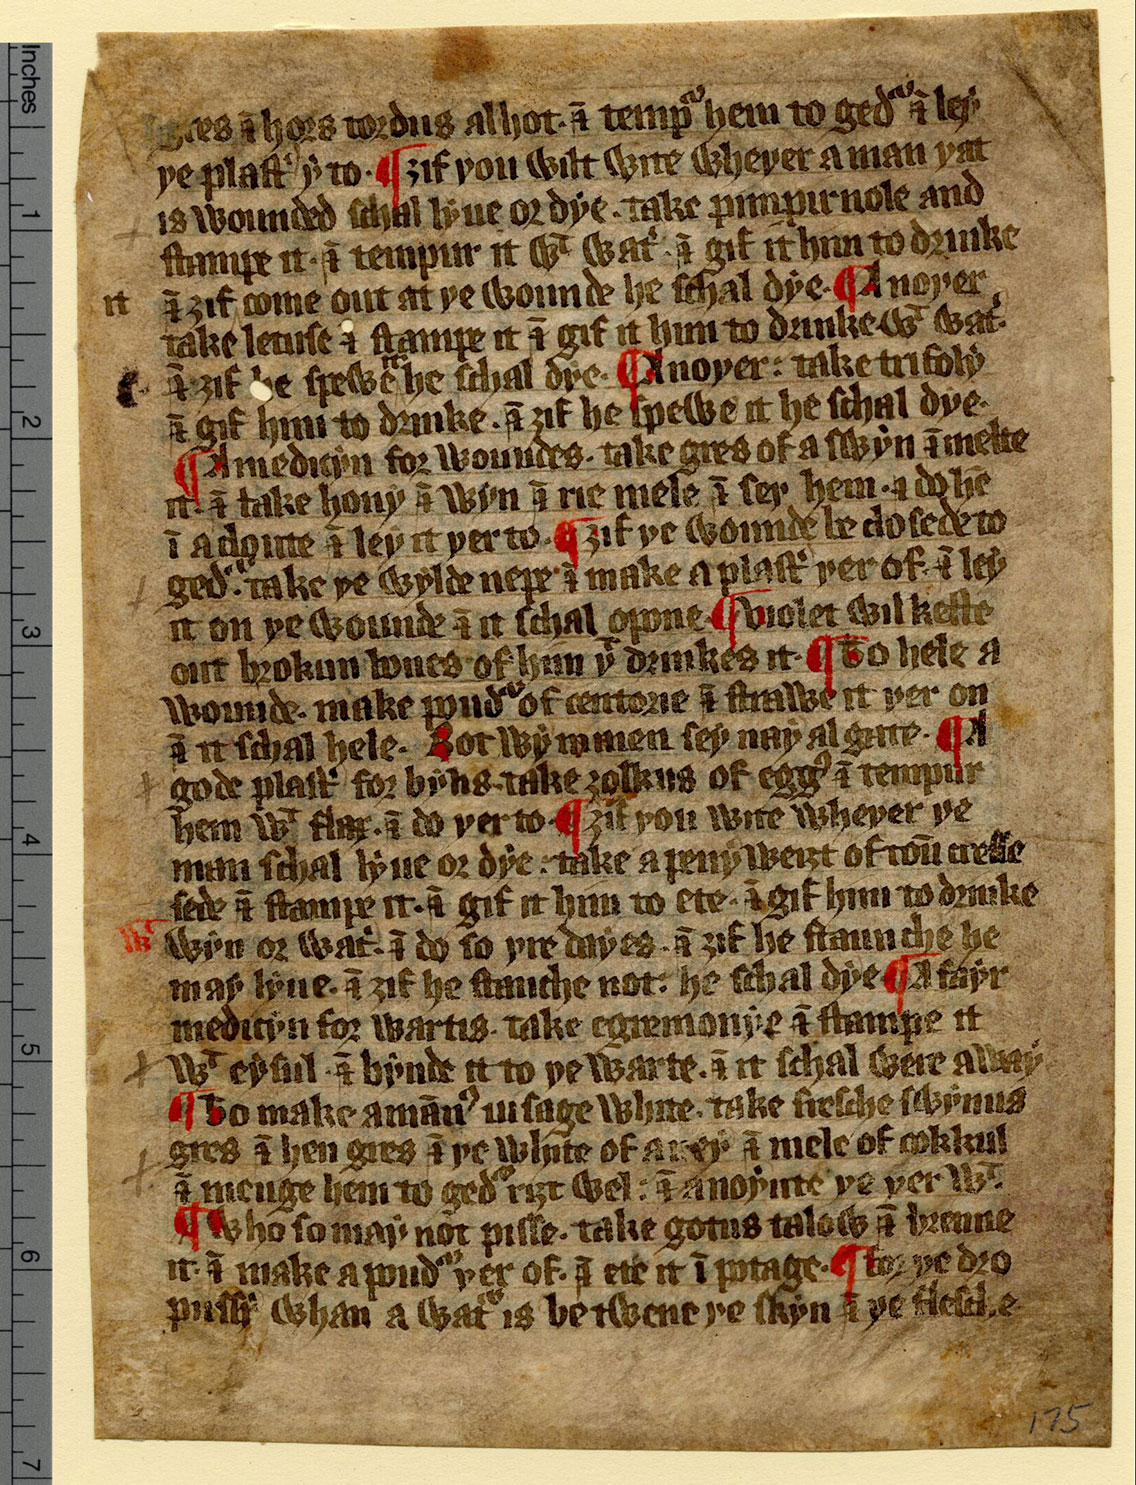 gres ā hors tordus al hot · ā tempᵃ hem to gedᵃ ā ley
ye plastʳ yͭ to · ¶ ȝif you wilt wite wheyer a man yat
is wounded schal lyue or dye · take pimpurnole and
stampe it · ā tempur it wͭ watʳ · ā gif it him to drinke
it ā ȝif come out at ye wounde he schal dye · ¶ Anoyer
take letuse ⁊ stampe it ā gif it him to drinke wͭ watʳ ·
ā ȝif he spewe it he schal dye · ¶ Anoyer : take trifoly
ā gif him to drinke · ā ȝif he spewe it he schal dye ·
¶ A medicyn for woundes · take gres of a swyn ā melte
it · ā take hony ā wyn ā rie mele ā sey hem · ⁊ do hē
ī a cloute ā ley it yer to · ¶ ȝif ye wounde be closede to
gedᵃ : take ye wylde nepe ā make a plastʳ yer of · ā ley
it on ye wounde ā it schal opone · ¶ violet wil keste
out brokun bones of him yͭ drinkes it · ¶ To hele a
wounde · make poudᵃ of centorie ā strawe it yer on
ā it schal hele · Bot wymmen sey nay al gate · ¶ A
gode plastʳ for byȷls · take ȝolkus of eggꝰ ā tempur
hem wͭ flax · ā do yer to · ¶ ȝif you wite wheyer ye
man schal lyue or dye : take a peny weiȝt of toū cresse
sede ā stampe it · ā gif it him to ete · ā gif him to drinke
wͭ wyn or watʳ · ā do so yre dayes · ā ȝif he staunche he
may lyue · ā ȝif he stanche not : he schal dye ¶ A fayr
medicyn for wartis · take egremonye ā stampe it
wͭ eysul · ā bynde it to ye warte · ā it schal were away
¶ To make a mānꝰ uisage white · take fresche swynus
gres ā hen gres ā ye white of a ey ā mele of cokkul
ā menge hem to gedᵃ riȝt wel : ā anoynte ye yer wͭ ·
¶ Who so may not pisse · take gotus talow ā brenne
it · ā make a poudᵃ yer of · ā ete it ī potage · ¶ for ye dro
pussy whan a watᵃ is be twene ye skyn ā ye flesche
175
Inches
1
2
3
4
5
6
7